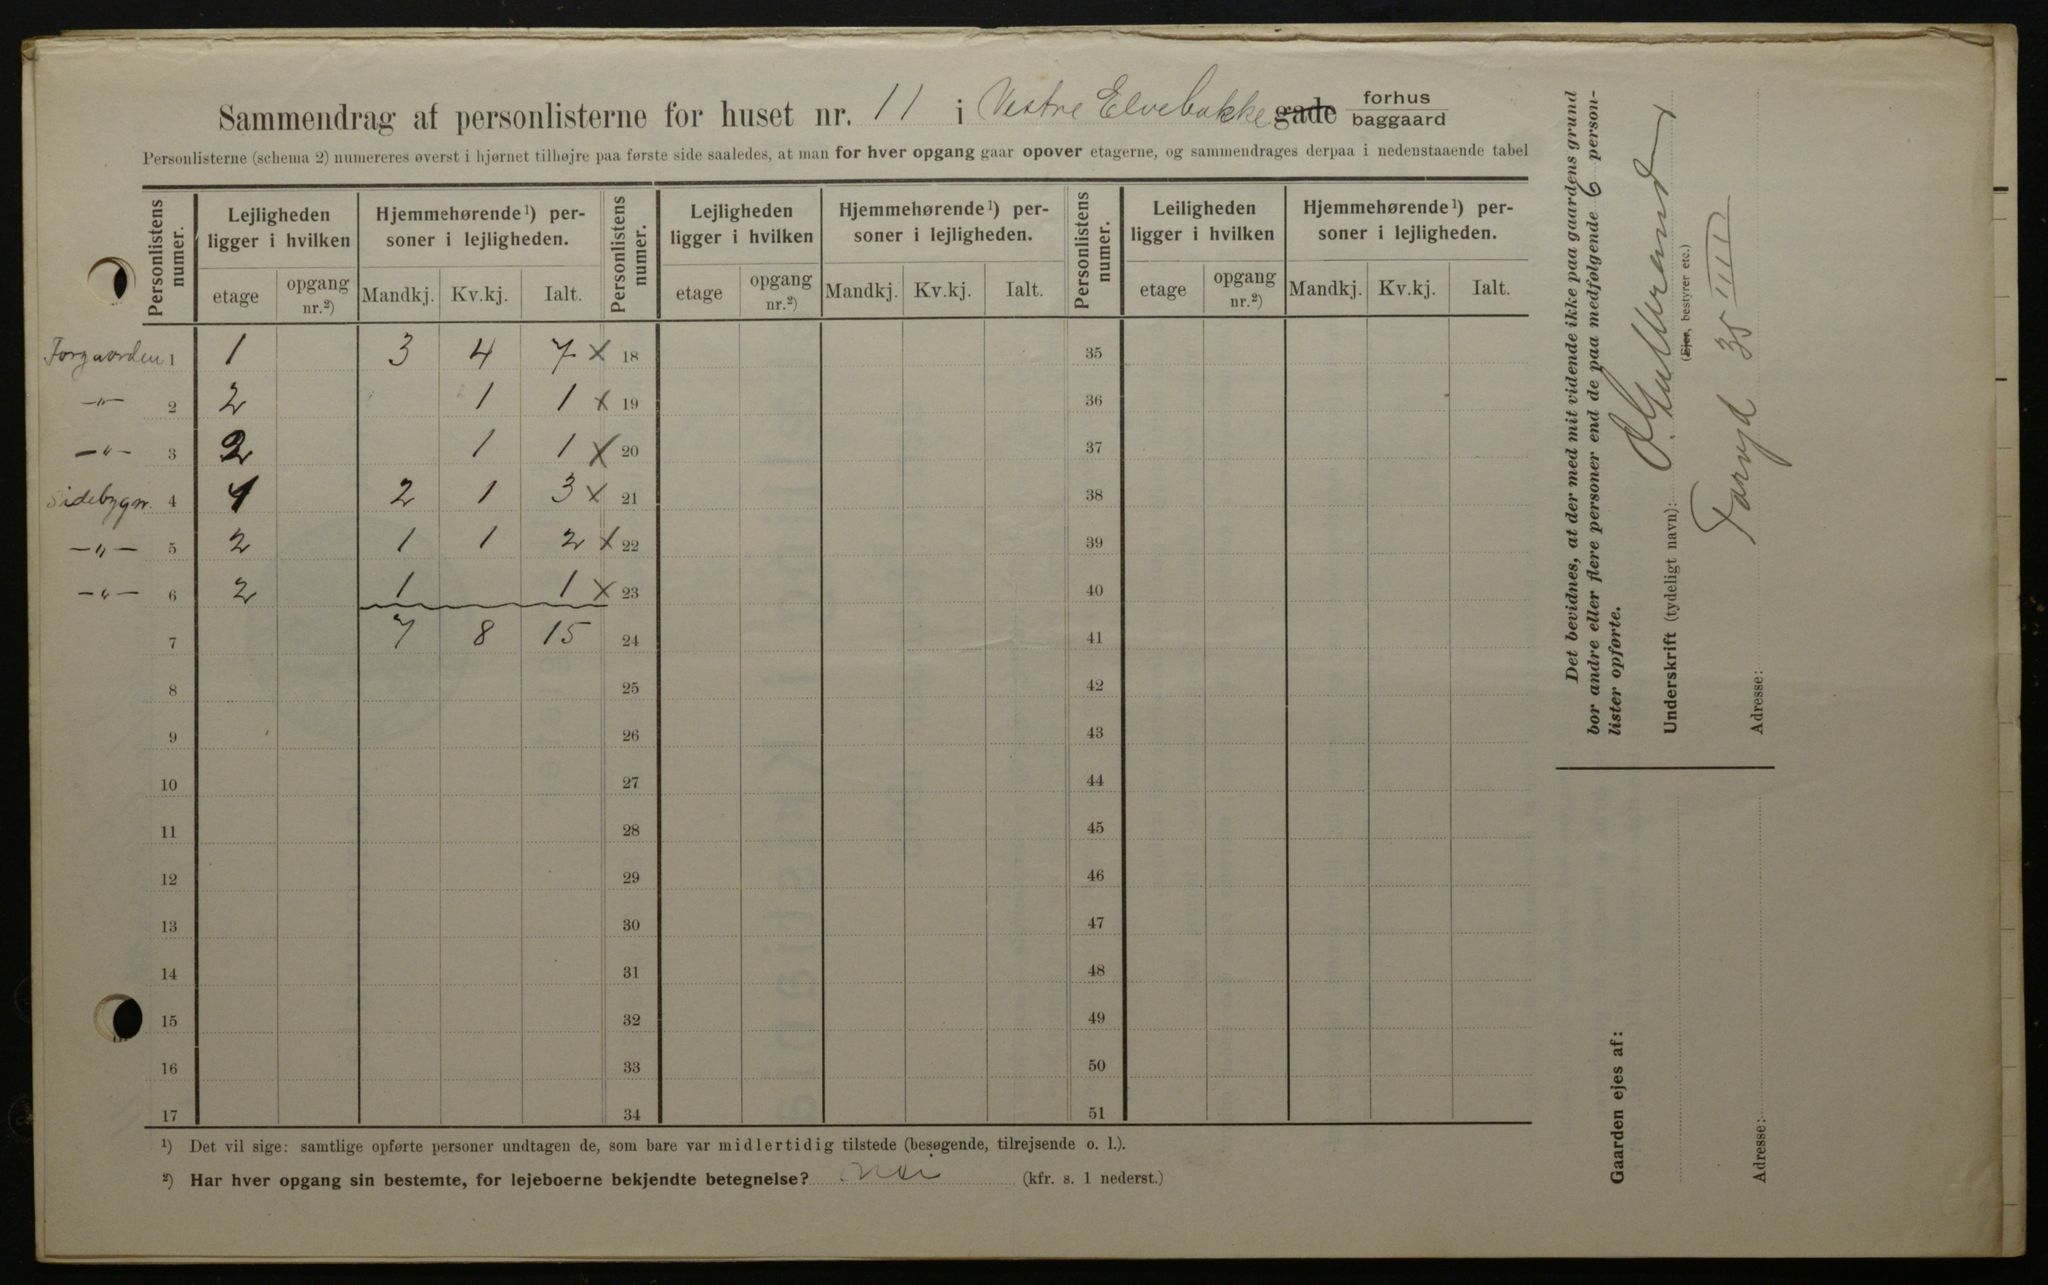 Sammendrag af personlisterne for huset nr. 11 i Vestre Elvebakke gade forhus baggaard
Personlisterne (schema 2) numereres øverst i hjørnet tilhøjre paa første side saaledes, at man for hver opgang gaar opover etagerne, og sammendrages derpaa i nedenstaaende tabel
Personlistens numer. Lejligheden ligger i hvilken Hjemmehørende¹) personer i lejligheden. Personlistens numer. Lejligheden ligger i hvilken Hjemmehørende¹) personer i lejligheden. Personlistens numer. Leiligheden ligger i hvilken Hjemmehørende¹) personer i lejligheden.
etage opgang nr.²) Mandkj. Kv.kj. Ialt. etage opgang nr.²) Mandkj. Kv.kj. Ialt. etage opgang nr.²) Mandkj. Kv.kj. Ialt.
Forgaarden 1 1 3 4 7 x 18 35
—„— 2 2 1 1 x 19 36
—„— 3 2 1 1 x 20 37
Sidebygn. 4 1 2 1 3 x 21 38
—„— 5 2 1 1 2 x 22 39
—„— 6 2 1 1 x 23 40
7 7 8 15 24 41
8 25 42
9 26 43
10 27 44
11 28 45
12 29 46
13 30 47
14 31 48
15 32 49
16 33 50
17 34 51
¹) Det vil sige: samtlige opførte personer undtagen de, som bare var midlertidig tilstede (besøgende, tilrejsende o. l.).
²) Har hver opgang sin bestemte, for lejeboerne bekjendte betegnelse? Nei (kfr. s. 1 nederst.)
Det bevidnes, at der med mit vidende ikke paa gaardens grund
bor andre eller flere personer end de paa medfølgende 6 person-
lister opførte.
Underskrift (tydeligt navn):
(Ejer, bestyrer etc.)
Adresse: 35 III
Gaarden ejes af:
Adresse: